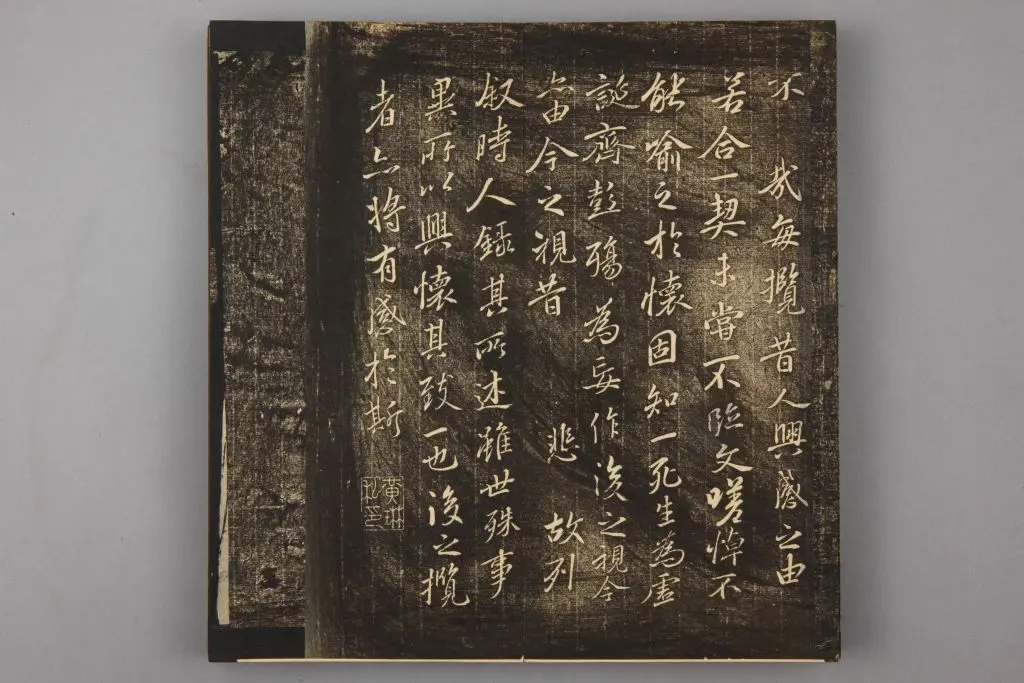 不 哉每攬昔人興感之由
若合一契未嘗不臨文嗟悼不
能喻之於懷固知一死生為虛
誕齊彭殤為妄作後之視今
亦由今之視昔 悲 故列
叙時人録其所述雖世殊事
異所以興懷其致一也後之攬
者亦將有感於斯